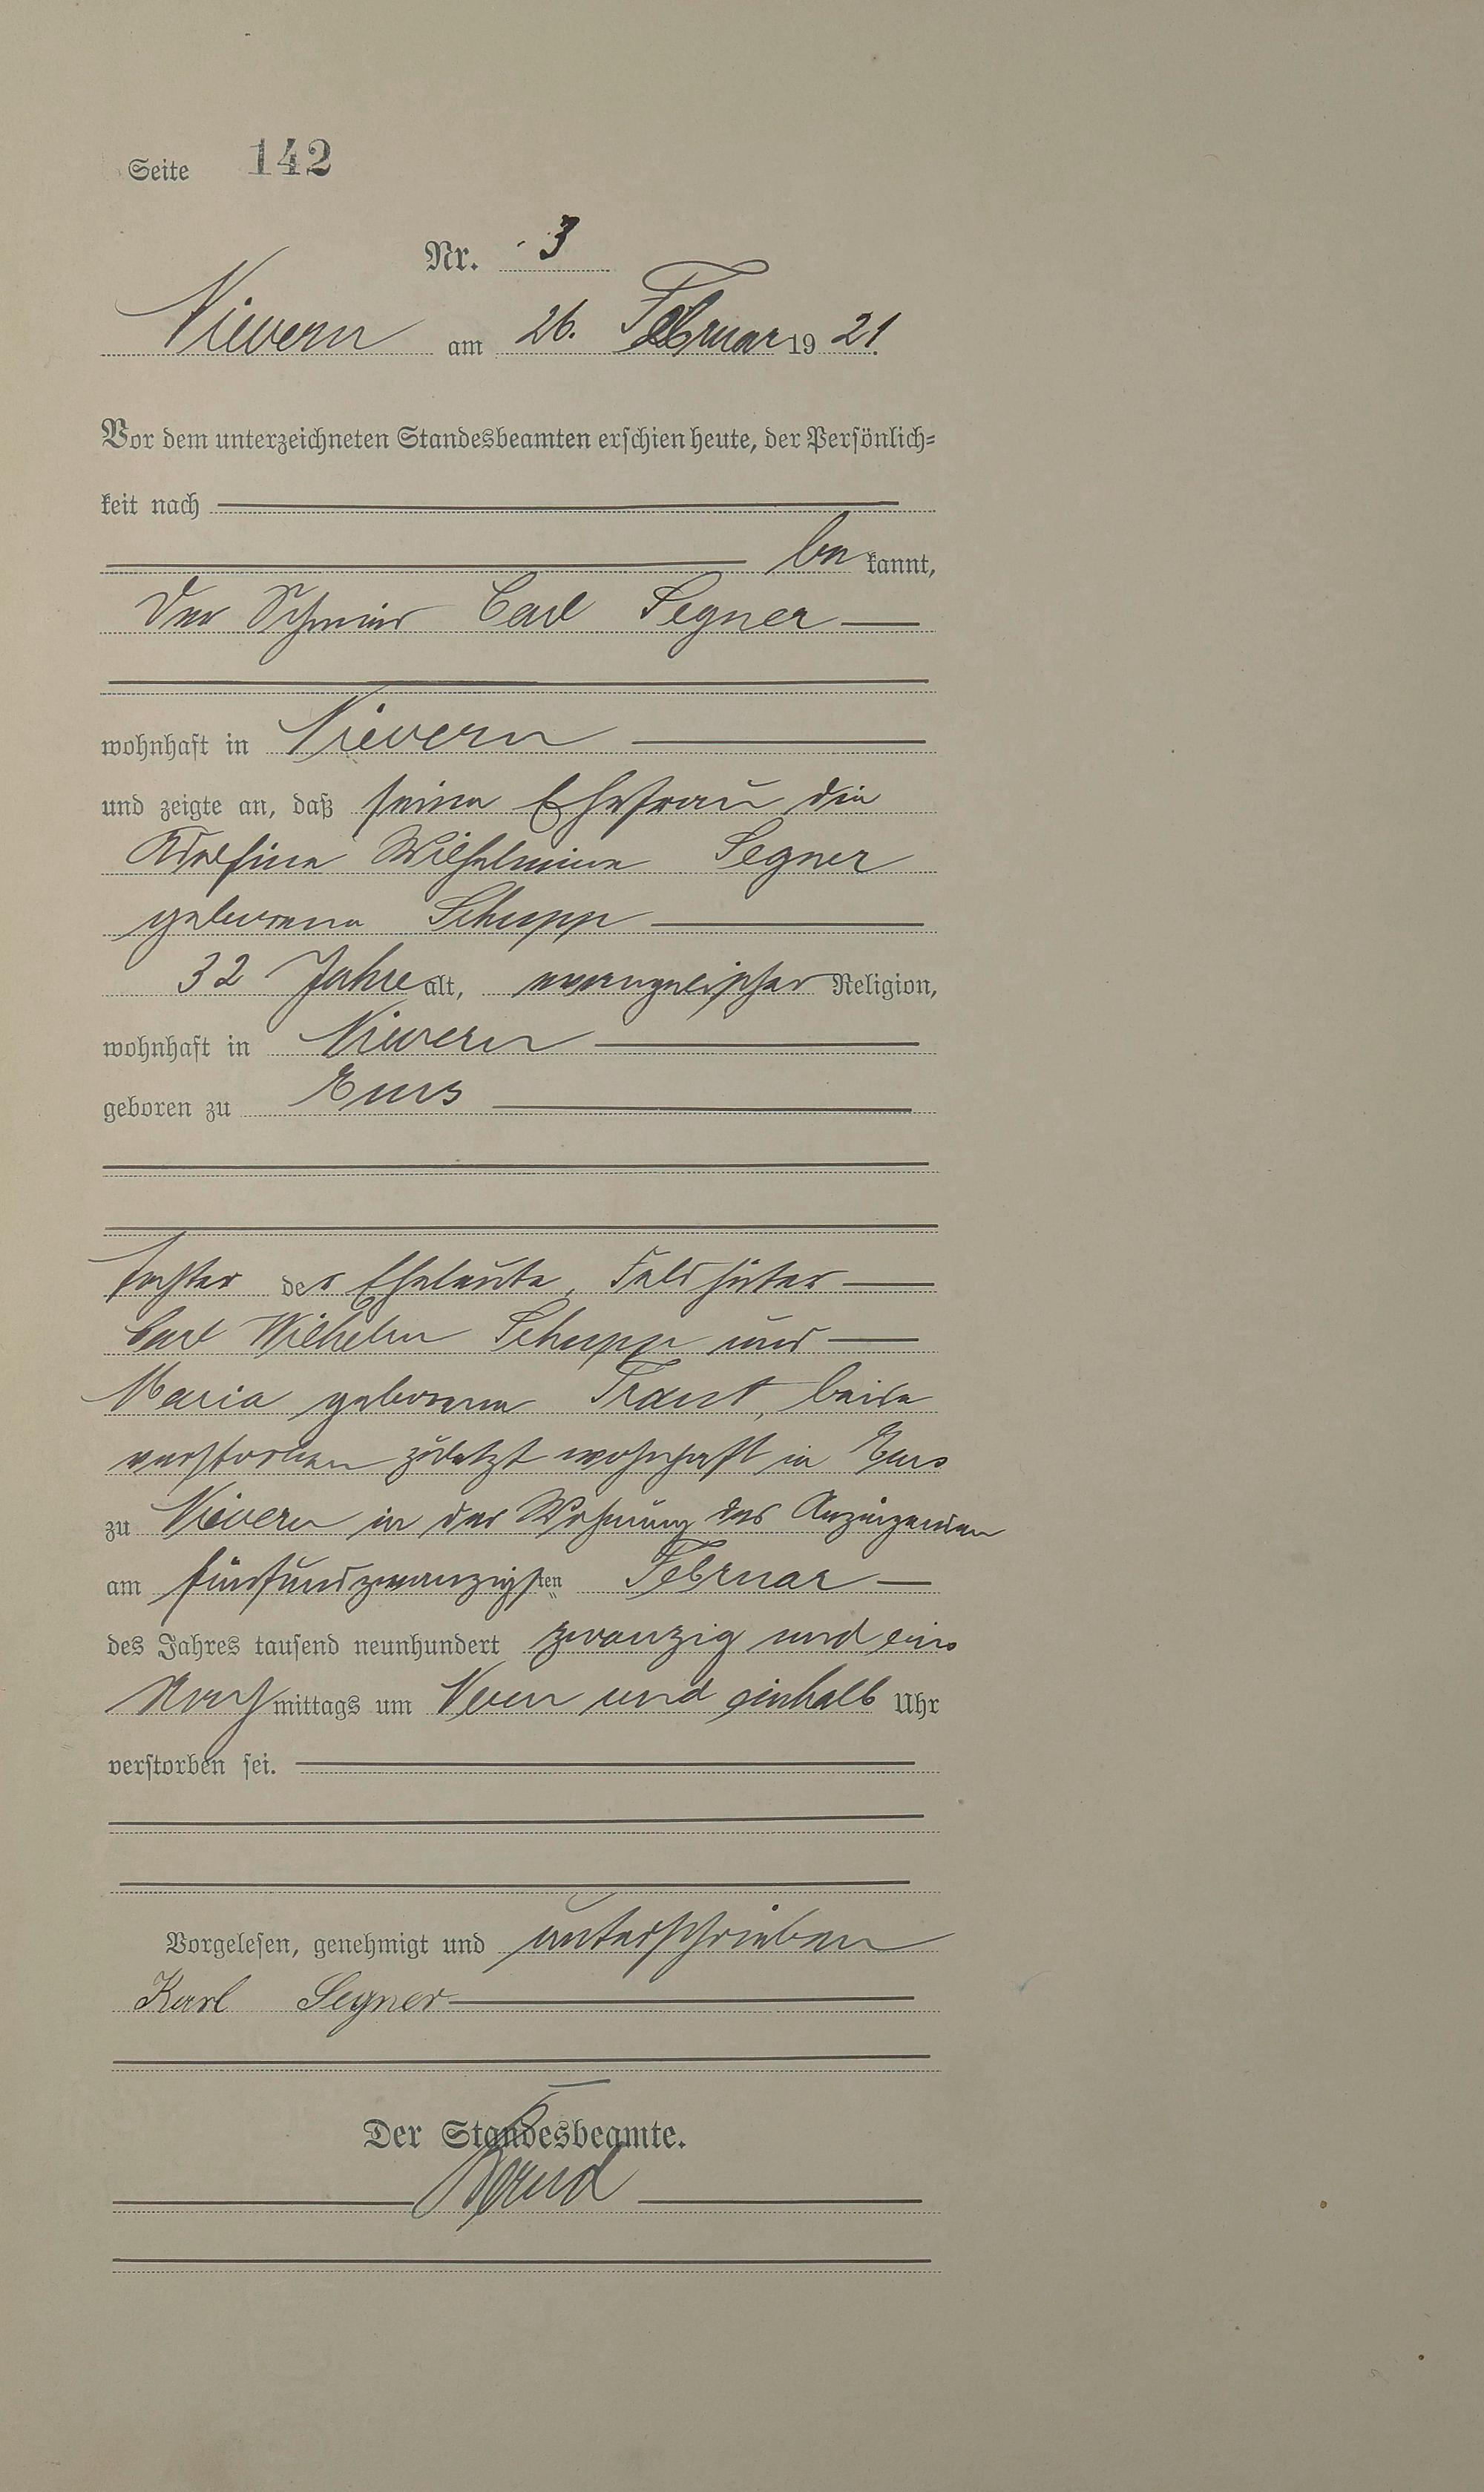 Seite 142
Nr. 3
Nievern am 26. Februar 1921.
Vor dem unterzeichneten Standesbeamten erschien heute, der Persönlich=
keit nach
be kannt,
der Schmied Carl Segner
wohnhaft in Nievern
und zeigte an, daß seine Ehefrau die
Adolfine Wilhelmine Segner
geborene Schupp
32 Jahre alt, evangelischer Religion,
wohnhaft in Nievern
geboren zu Ems
Tochter der Eheleute, Feldhüter
Carl Wilhelm Schupp und
Maria geborene Traut, beide
verstorben zuletzt wohnhaft in Ems
zu Nievern in der Wohnung des Anzeigenden
am fünfundzwanzigsten Februar
des Jahres tausend neunhundert zwanzig und eins
Nachmittags um Neun und einhalb Uhr
verstorben sei.
Vorgelesen, genehmigt und unterschrieben
Karl Segner
Der Standesbeamte.